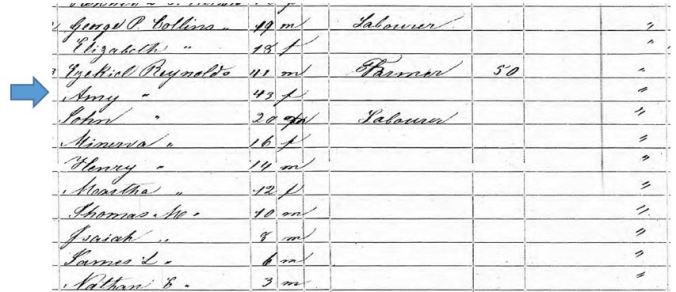 George P. Collins " 19 m Labourer "
Elizabeth " 18 f "
Ezekiel Reynolds 41 m Farmer 50 "
Amy " 43 f "
John " 20 m Labourer "
Minerva " 16 f "
Henry " 14 m "
Martha " 12 f "
Thomas M. " 10 m "
Isaiah " 8 m "
James L " 6 m "
Nathan E. " 3 m "